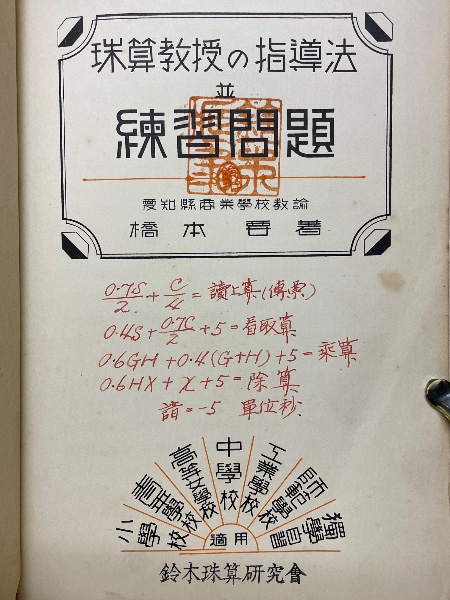 珠算教授の指導法
並
練習問題
愛知縣商業學校教諭
橋本 吾著
0.7S/2 + C/4 = 讀上算(傳票)
0.4S + 0.7C/2 + 5 = 看取算
0.6GH + 0.4(G+H) + 5 = 乘算
0.6HX + X + 5 = 除算
諳 = -5 單位秒
小學校
靑年學校
高等女學校
中學校
工業學校
獨學自習
適用
鈴木珠算研究會